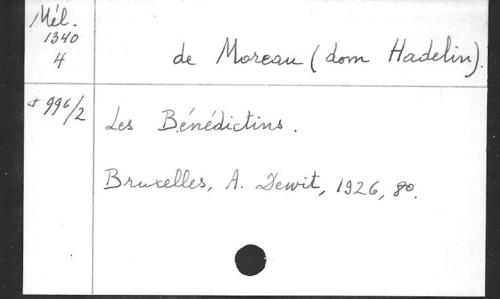 Mél.
1340
4
de Moreau (dom Hadelin).
+ 996/2
Les Bénédictins.
Bruxelles, A. Dewit, 1926, 8o.